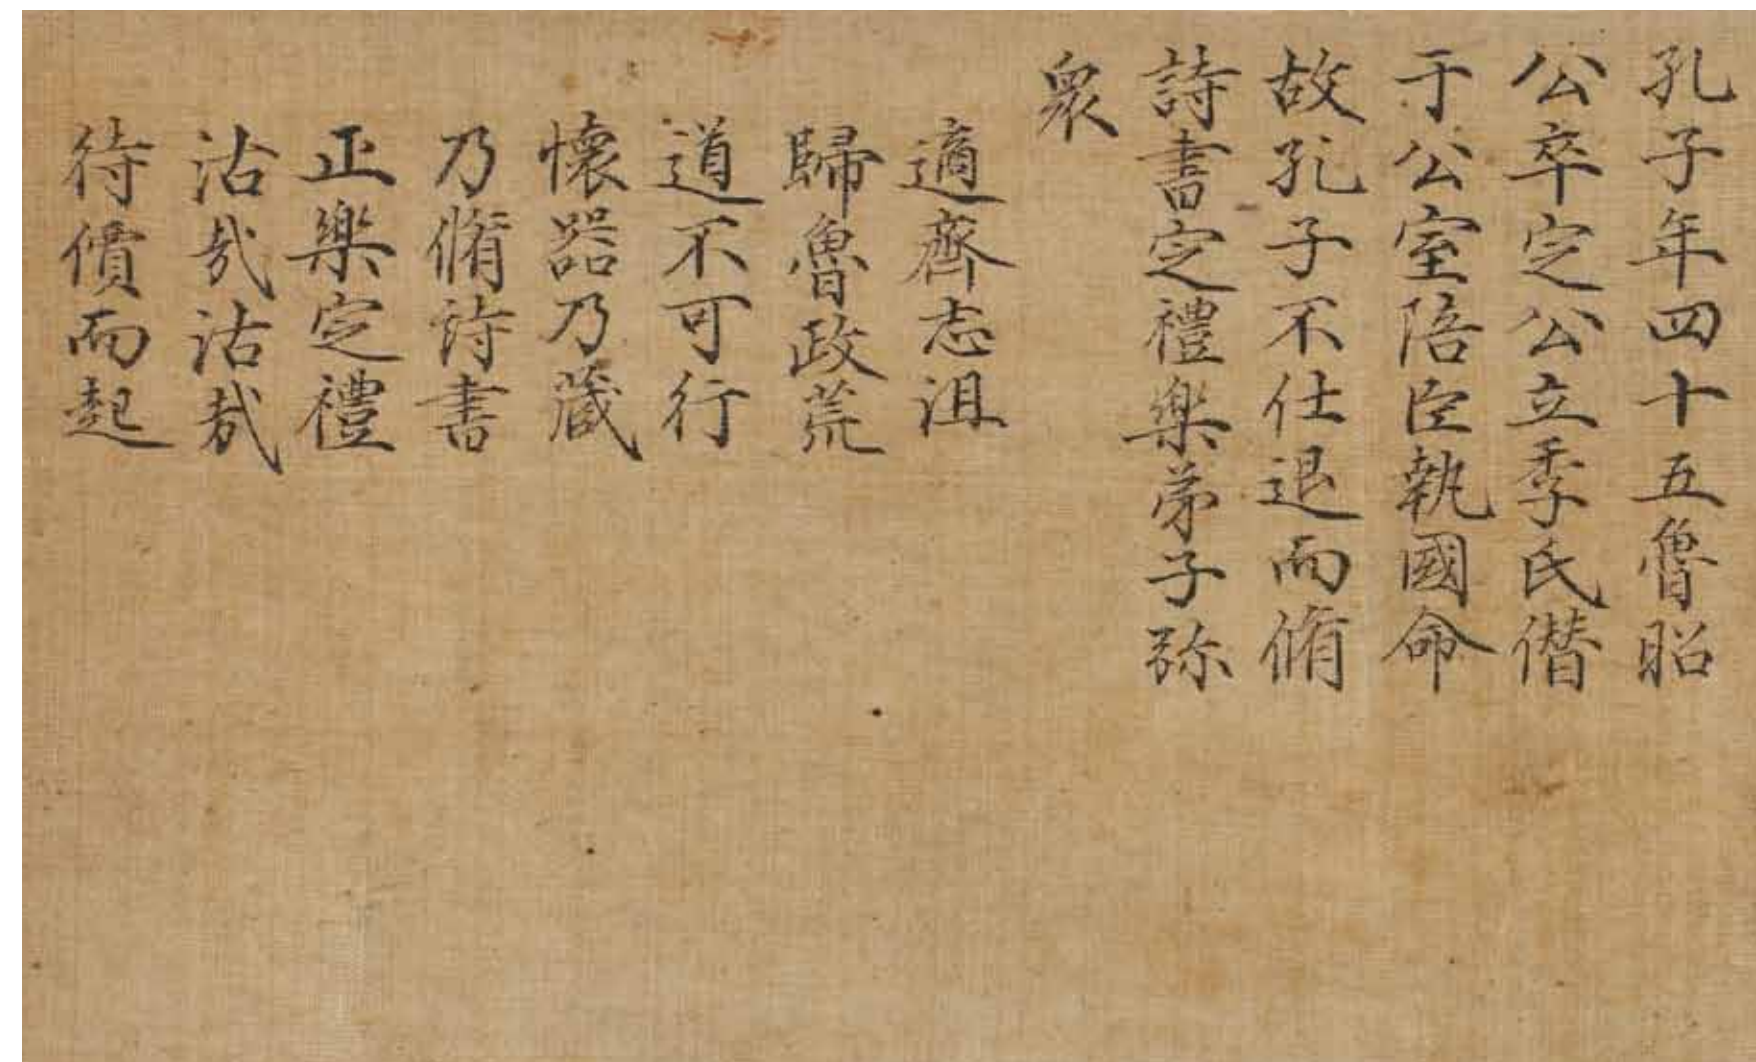 孔子年四十五魯昭
公卒定公立季氏僭
于公室陪臣執國命
故孔子不仕退而脩
詩書定禮樂弟子弥
衆
適齊志沮
歸魯政荒
道不可行
懷器乃藏
乃脩詩書
正樂定禮
沽哉沽哉
待價而起